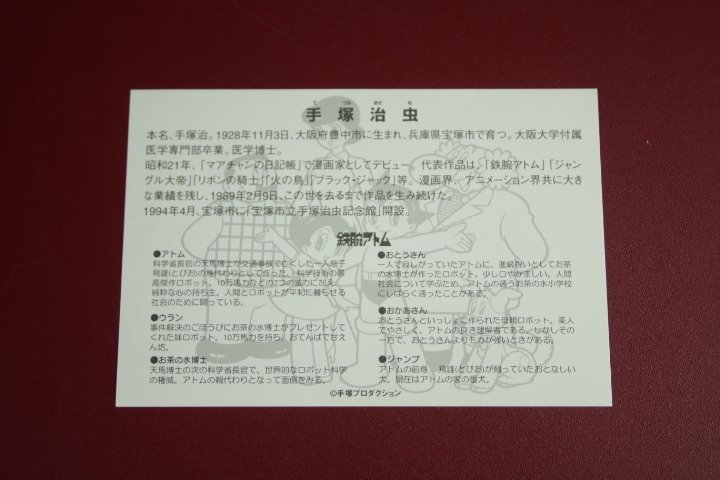 てづか おさむ
手塚治虫
本名、手塚治。1928年11月3日、大阪府豊中市に生まれ、兵庫県宝塚市で育つ。大阪大学付属
医学専門部卒業。医学博士。
昭和21年、「マアチャンの日記帳」で漫画家としてデビュー。代表作品は、「鉄腕アトム」「ジャン
グル大帝」「リボンの騎士」「火の鳥」「ブラック・ジャック」等。漫画界、アニメーション界共に大き
な業績を残し、1989年2月9日、この世を去るまで作品を生み続けた。
1994年4月、宝塚市に「宝塚市立手塚治虫記念館」開設。
鉄腕アトム
●アトム
科学省長官の天馬博士が交通事故で亡くした一人息子
飛雄(とびお)の身代わりとして作った、科学技術の最
高傑作ロボット。10万馬力などの7つの威力に加え、
純粋な心の持ち主。人間とロボットが平和に暮らせる
社会のために闘っている。
●ウラン
事件解決のごほうびにお茶の水博士がプレゼントして
くれた妹ロボット。10万馬力を持ち、おてんばで甘え
ん坊。
●お茶の水博士
天馬博士の次の科学省長官で、世界的なロボット科学
の権威。アトムの親代わりとなって面倒をみる。
●おとうさん
一人で寂しがっていたアトムに、進級祝いとしてお茶
の水博士が作ったロボット。少し口やかましい。人間
社会について学ぶため、アトムの通うお茶の水小学校
にしばらく通ったことがある。
●おかあさん
おとうさんといっしょに作られた母親ロボット。美人
でやさしく、アトムの良き理解者である。しかしその
一方で、おとうさんよりも力が強いときがある。
●ジャンプ
アトムの前身、飛雄(とびお)が飼っていたおとなしい
犬。現在はアトムの家の番犬。
©手塚プロダクション